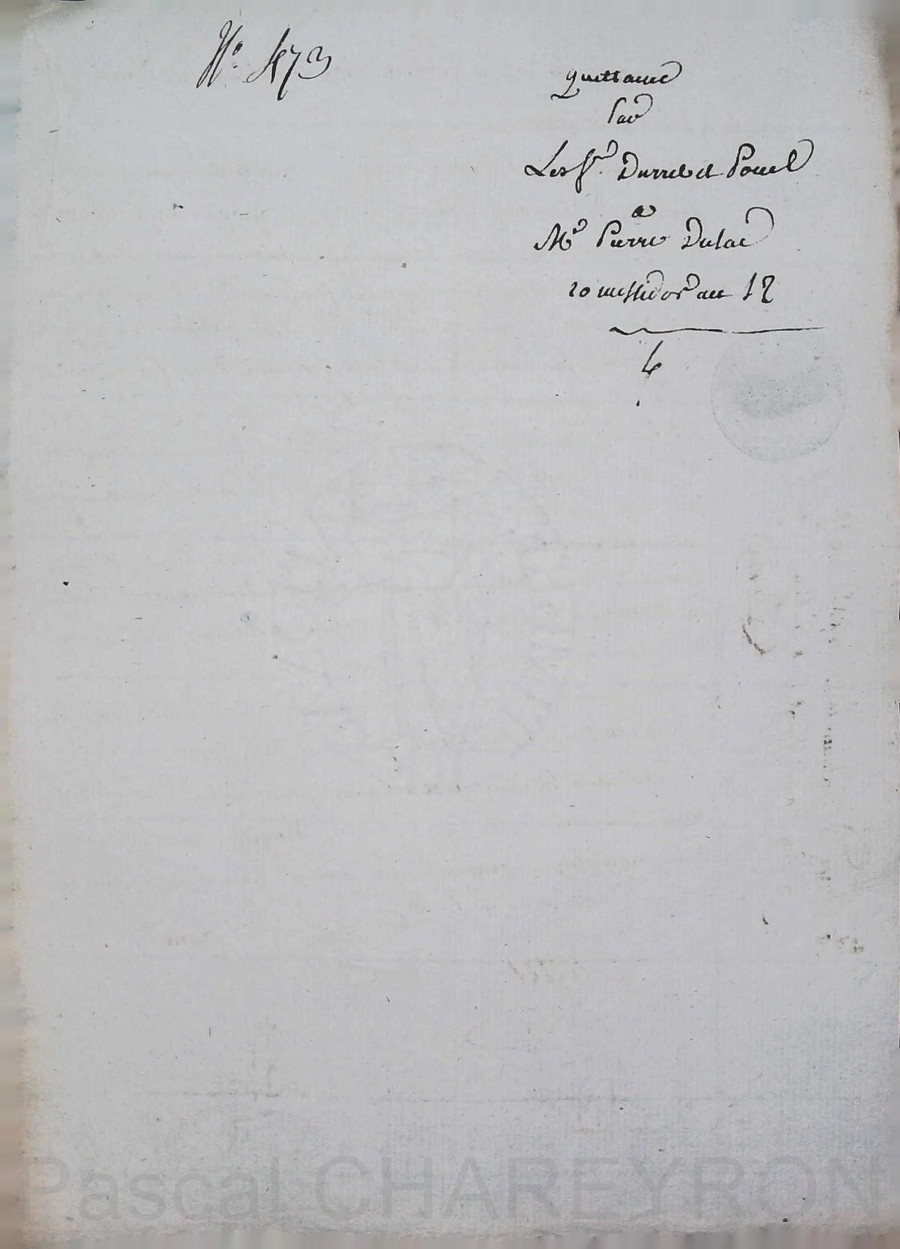 N.º 473
quittance
par
Les Srs. Durret et Pouel
a
Mr Pierre Dulac
20 messidor an 12
Pascal CHAREYRON